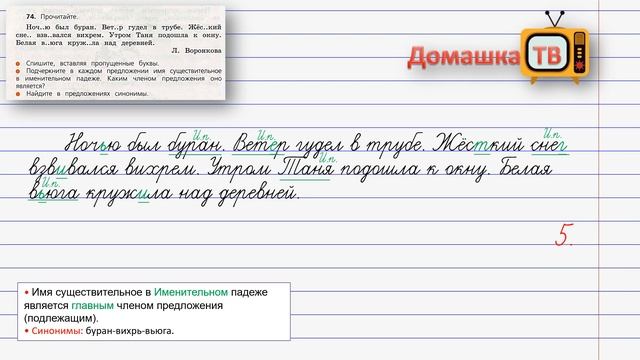 74. Прочитайте.
Ноч..ю был буран. Вет..р гудел в трубе. Жёс..кий
сне.. взв..вался вихрем. Утром Таня подошла к окну.
Белая в..юга круж..ла над деревней.
Л. Воронкова
Спишите, вставляя пропущенные буквы.
Подчеркните в каждом предложении имя существительное
в именительном падеже. Каким членом предложения оно
является?
Найдите в предложениях синонимы.
Домашка
ТВ
И.п. И.п. И.п.
Ночью был буран. Ветер гудел в трубе. Жёсткий снег
И.п.
взвивался вихрем. Утром Таня подошла к окну. Белая
И.п.
вьюга кружила над деревней.
5.
• Имя существительное в Именительном падеже
является главным членом предложения
(подлежащим).
• Синонимы: буран-вихрь-вьюга.